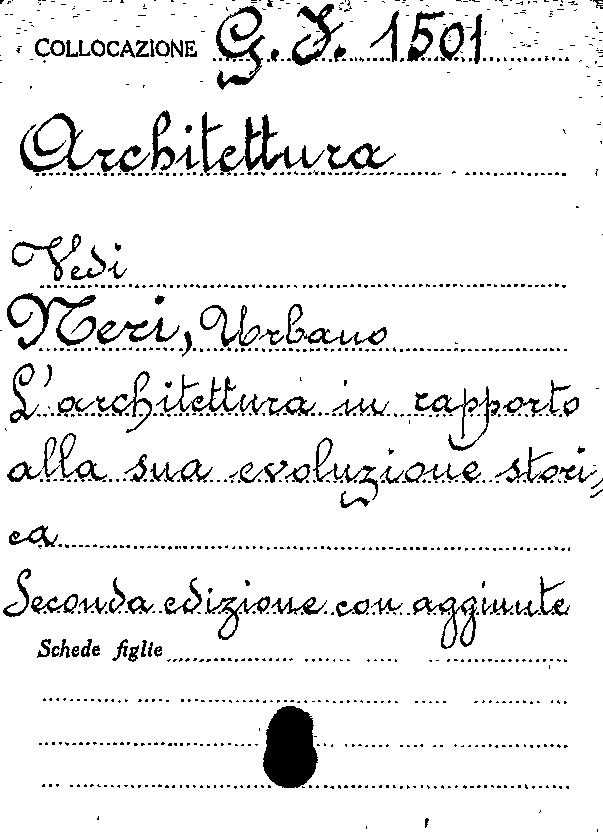 COLLOCAZIONE G. I. 1501
Architettura
Vedi
Neri, Urbano
L'architettura in rapporto
alla sua evoluzione stori,
ca
Seconda edizione con aggiunte
Schede figlie